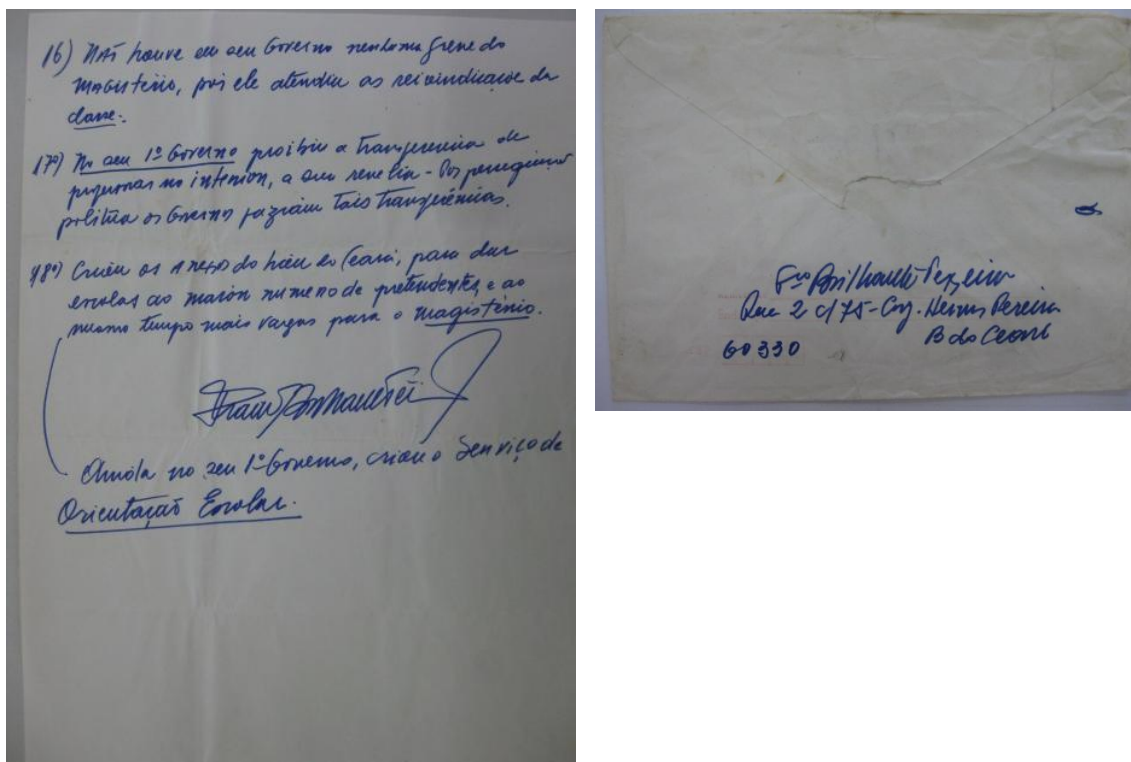 16) Não houve em seu Governo nenhuma greve do
magistério, pois ele atendia as reivindicações da
classe.
17º) No seu 1º Governo proibiu a transferencia de
professoras no interior, a sua revelia - Por perseguição
politica os Governos faziam tais transferências.
18º) Criou os anexos do Liceu do Ceará, para dar
escolas ao maior numero de pretendentes, e ao
mesmo tempo mais vagas para o magistério.
Ainda no seu 1º Governo, criou o Serviço de
Orientação Escolar.
Fco Brilhante Bezerra
Rua 2 c/75 - Conj. Hermes Pereira
B do Ceará
60330